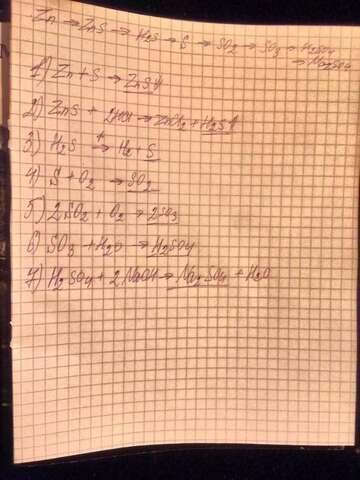 Zn → ZnS → H2S → S → SO2 → SO3 → H2SO4
→ Na2SO4
1) Zn + S → ZnS↓
2) ZnS + 2HCl → ZnCl2 + H2S↑
3) H2S →t H2 + S
4) S + O2 → SO2
5) 2SO2 + O2 → 2SO3
6) SO3 + H2O → H2SO4
7) H2SO4 + 2NaOH → Na2SO4 + H2O